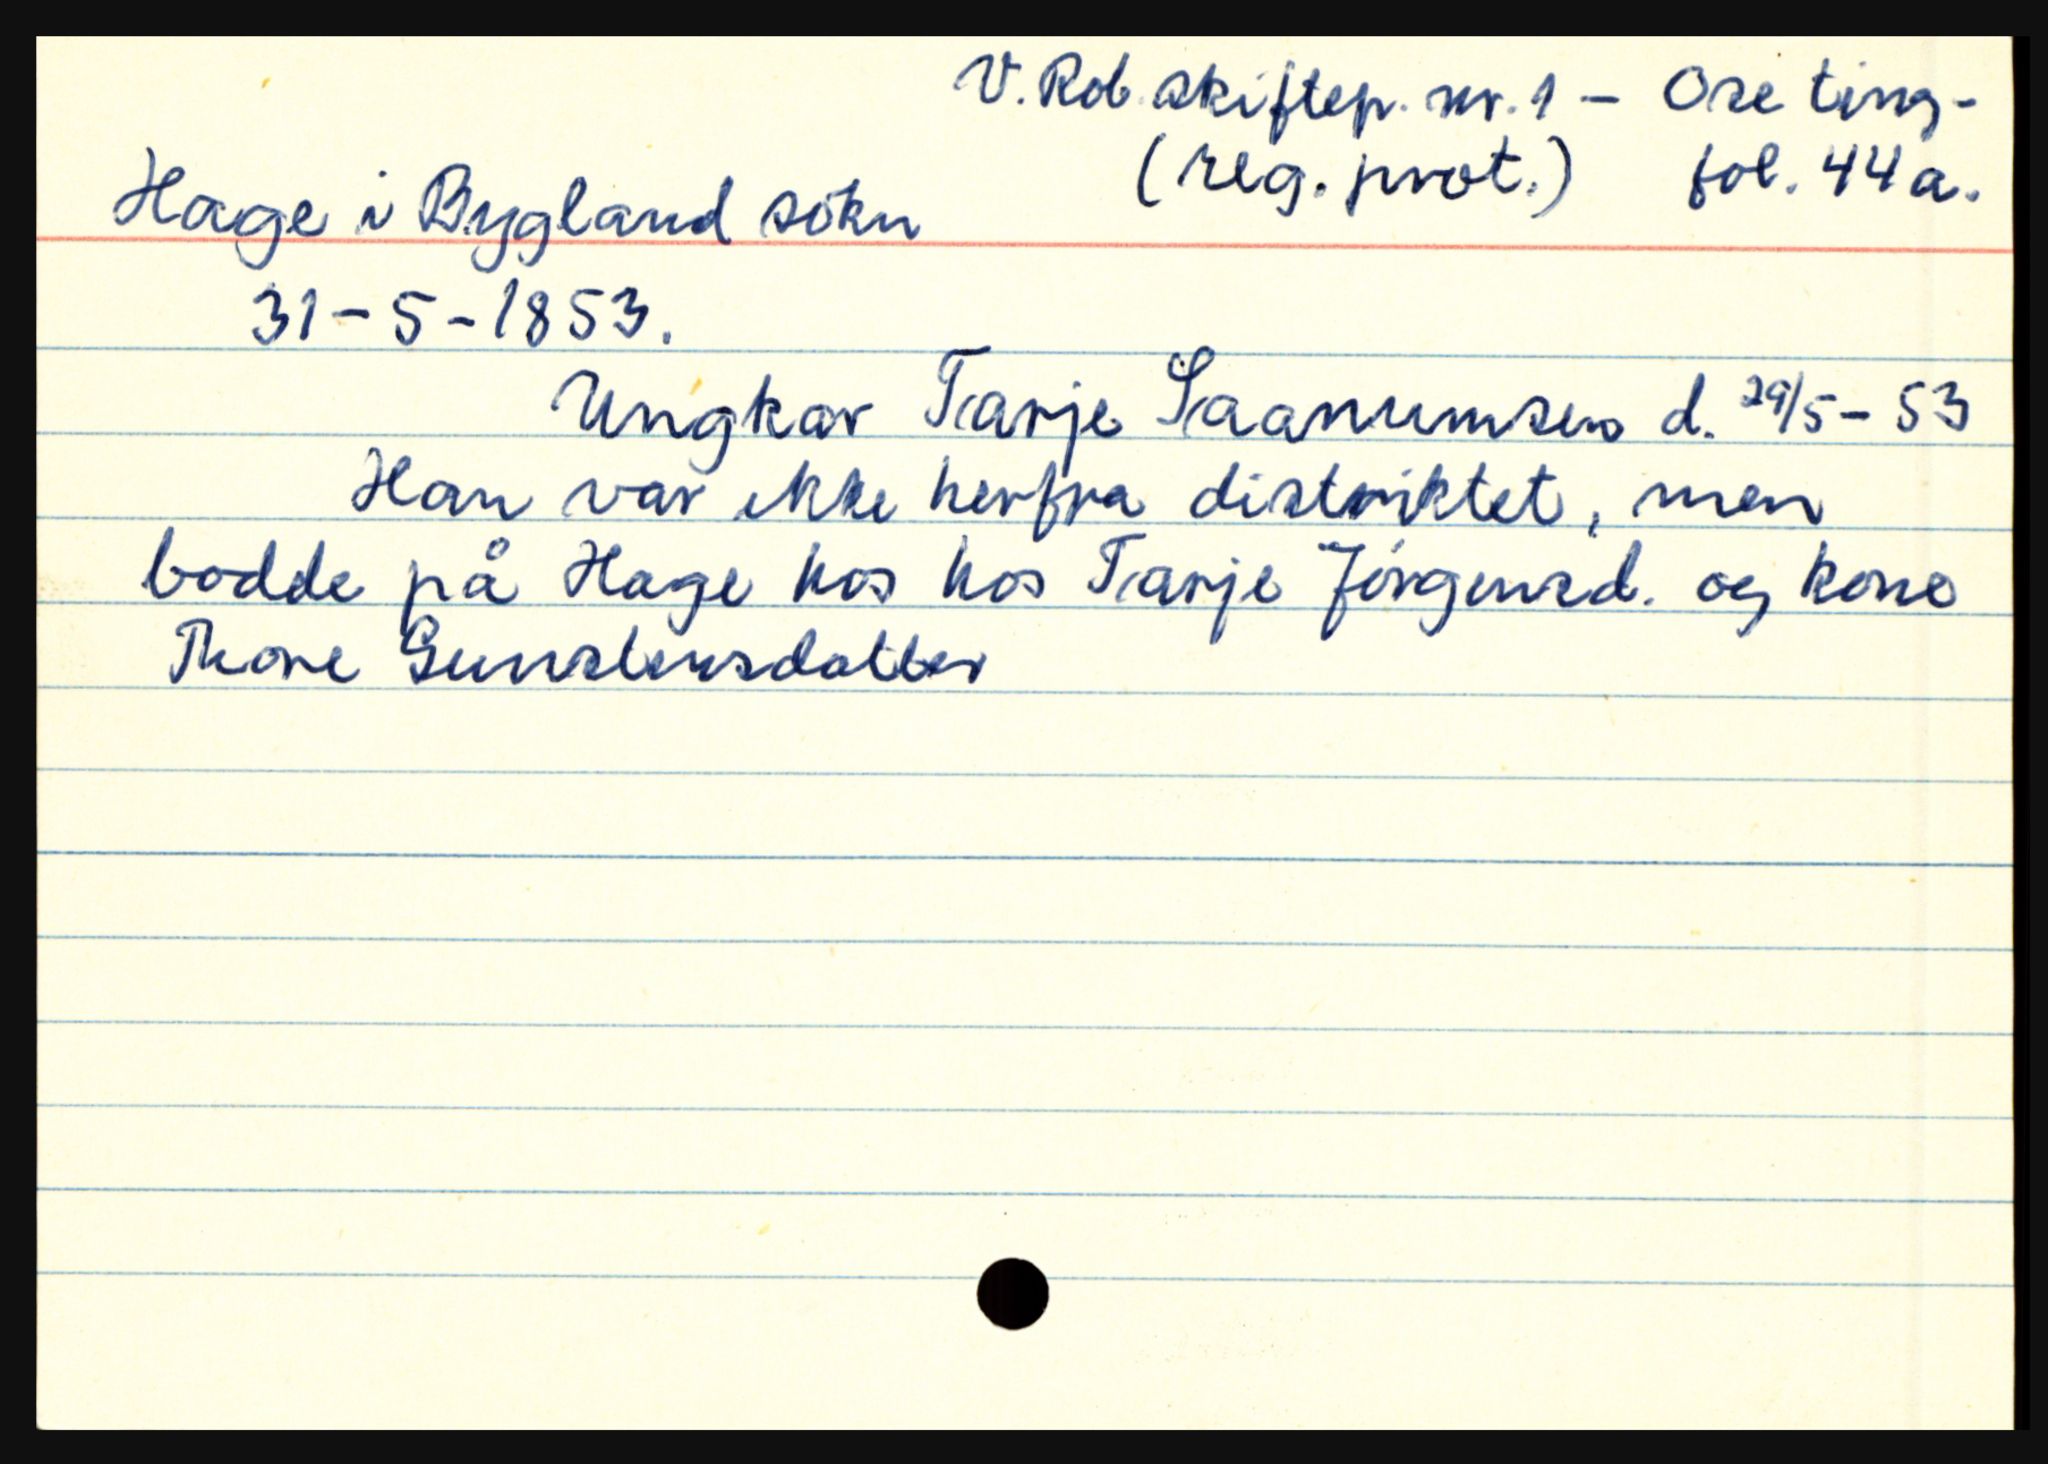 V. Rob. skiftep. nr. 1 - Ose ting-
(reg. prot.) fol. 44a.
Hage i Bygland sokn
31-5-1853.
Ungkar Tarje Saanumsen d. 29/5-53
Han var ikke herfra distriktet, men
bodde på Hage hos hos Tarje Jörgensd. og kone
Thore Gunstensdatter